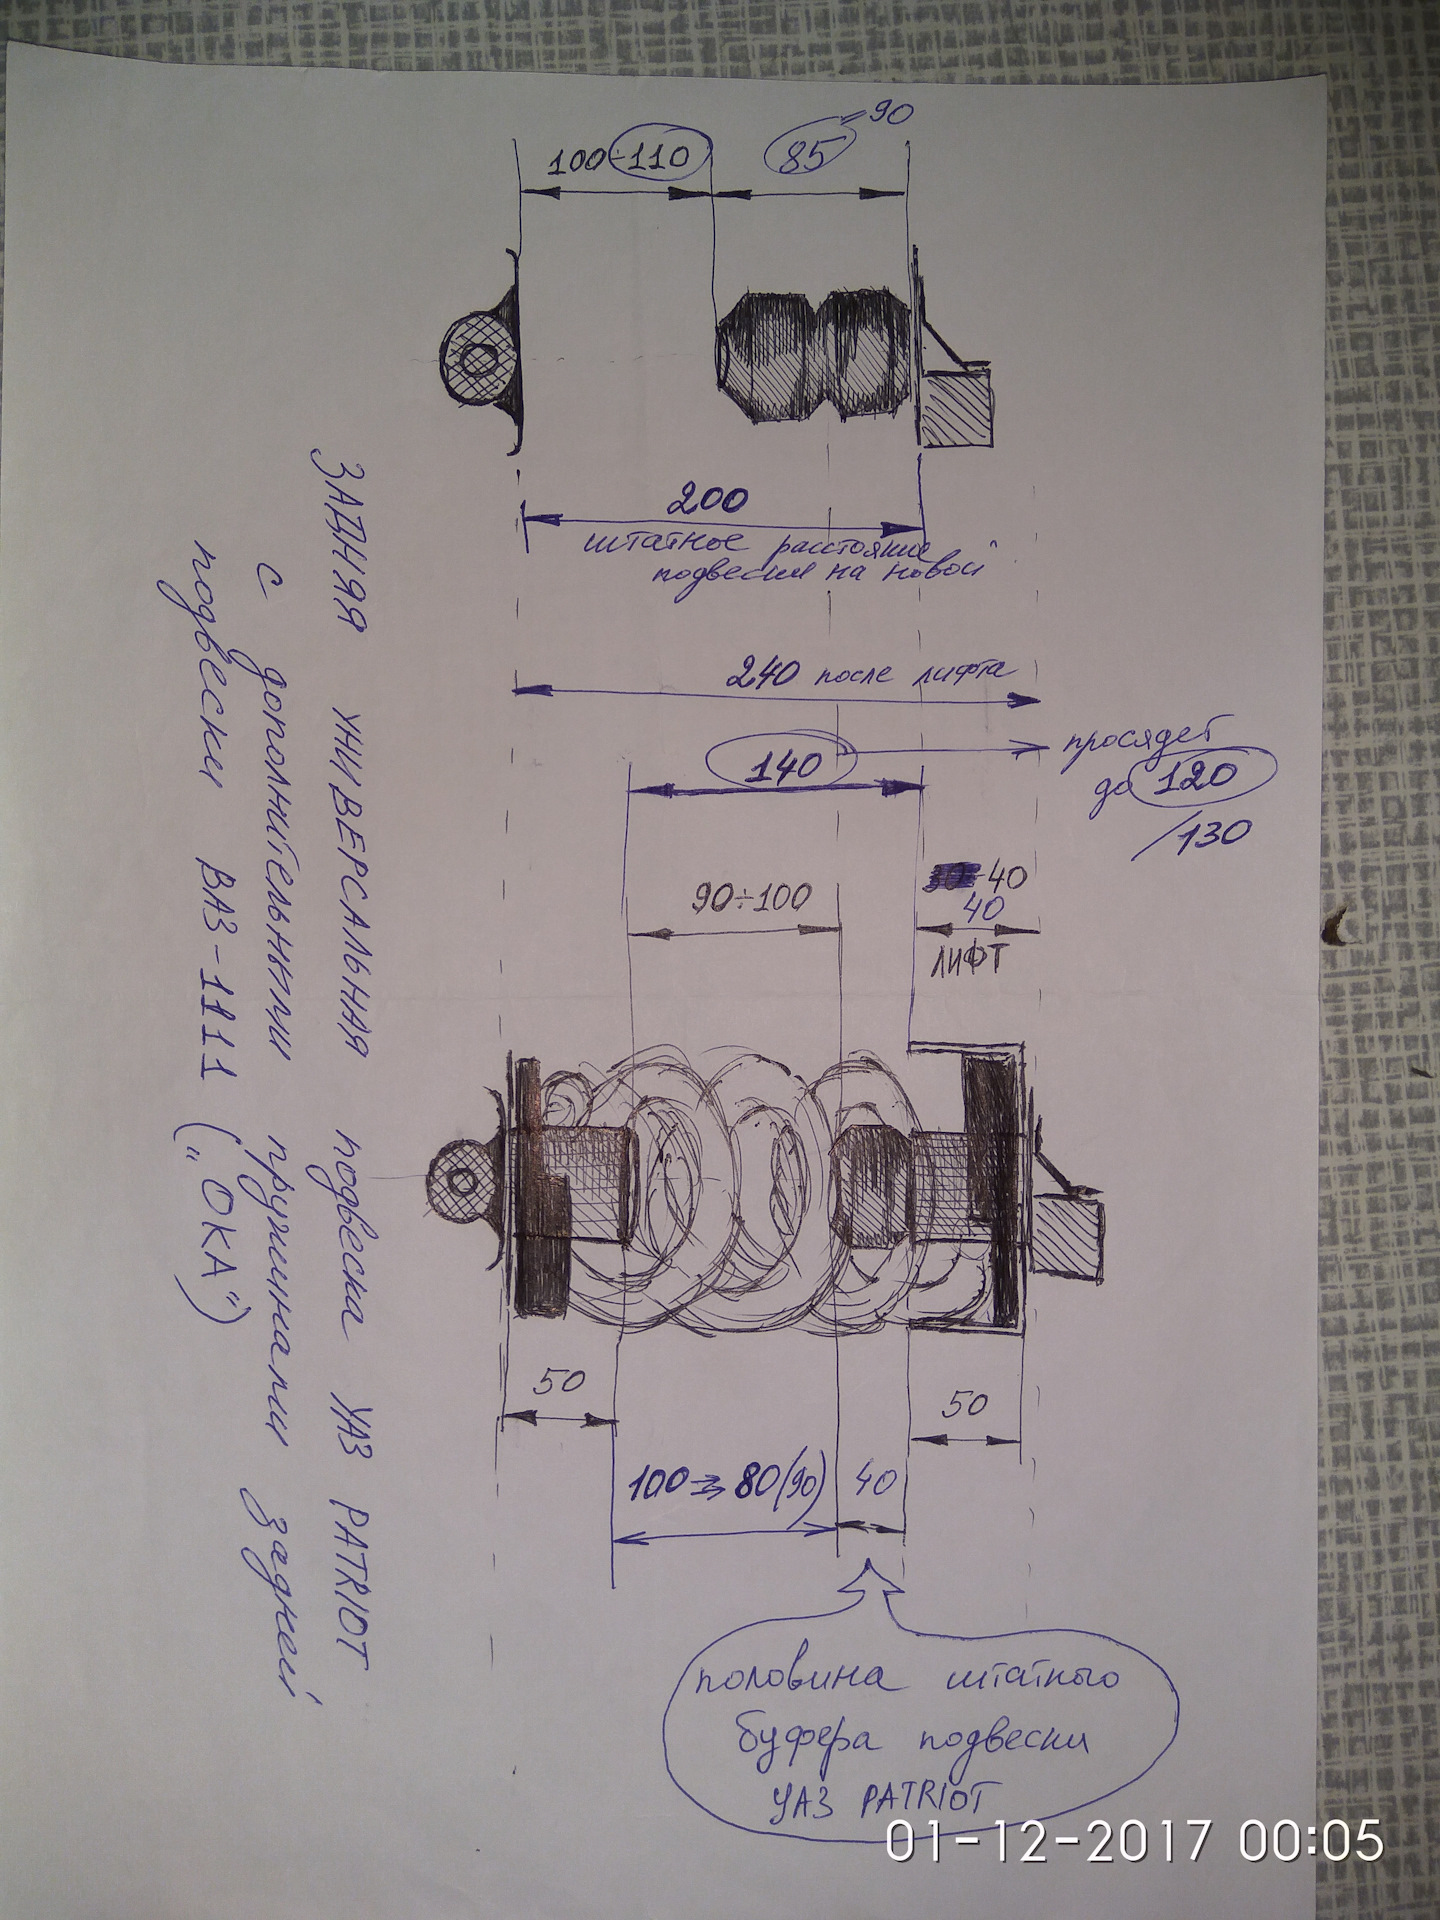 100÷110
85÷90
200
штатное расстояние
подвески на новой
240 после лифта
140
просядет
до 120
/130
90÷100
40
40
ЛИФТ
50
50
100⇒80(90)
40
половина штатного
буфера подвески
УАЗ PATRIOT
ЗАДНЯЯ УНИВЕРСАЛЬНАЯ подвеска УАЗ PATRIOT
с дополнительными пружинами задней
подвески ВАЗ-1111 („ОКА")
01-12-2017 00:05